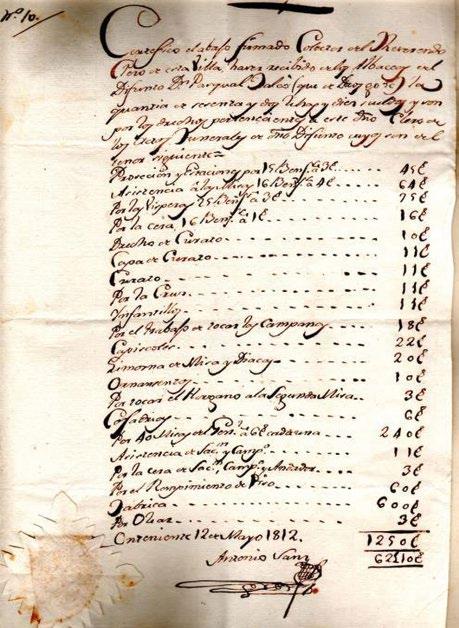 Nº. 10.
Certifico el abaxo firmado Colector del Reverendo
Clero de esta Villa, haver recibido de los Albaceas del
Difunto Dn Pasqual (que de Dios goze) la
quantia de sesenta y dos Libras y diez sueldos y son
por los drechos pertenecientes a este dho Clero de
los tres Funerales de dho Difunto cuyos son del
tenor siguiente=
Procecion y estaciones por 15 Benf.s a 3ξ 45ξ
Asistencia a las Misas 16 Benf.s a 4ξ 64ξ
Por las Visperas 25 Benf.s a 3ξ 75ξ
Por la cera, 16 Benf.s a 1ξ 16ξ
Drecho de Curato 10ξ
Capa de Curato 11ξ
Curato 11ξ
Por la Cruz 11ξ
Infantillos 11ξ
Por el trabajo de tocar las Campanas 18ξ
Capiscoles 22ξ
Limosna de Misa y Diacas 20ξ
Ornamentos 10ξ
Por tocar el Horgano a la Segunda Misa 3ξ
Cofadrias 6ξ
Por 40 Misas del a 6ξ cada una 240ξ
Asistencia de Sac.n y Camp.o 11ξ
Por la cera de Sac.n Camp.o y Andador 3ξ
Por el Rompimiento de Vaso 60ξ
Fabrica 600ξ
Por 3ξ
Onteniente 12 de Mayo 1812. 1250ξ
Antonio Sanz
62ξ10ξ